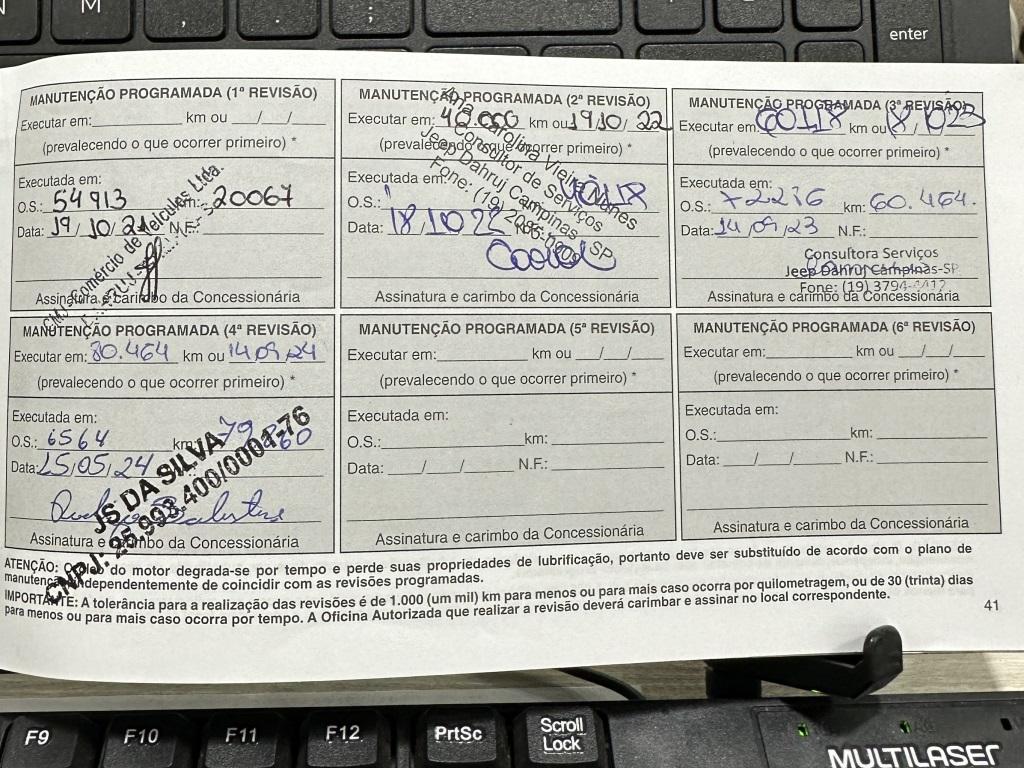 M
enter
MANUTENÇÃO PROGRAMADA (1ª REVISÃO)
Executar em: km ou / /
(prevalecendo o que ocorrer primeiro) *
Executada em:
O.S.: 54913 km: 20067
Data: 19/10/21 N.F.:
Comércio de Veículos Ltda.
Assinatura e carimbo da Concessionária
MANUTENÇÃO PROGRAMADA (2ª REVISÃO)
Executar em: 40.000 km ou 19/10/22
(prevalecendo o que ocorrer primeiro) *
Executada em:
O.S.:
Data: 18/10/22
Ana Carolina Vieira Nunes
Consultor de Serviços
Jeep Dahruj Campinas - SP
Fone: (19)
Assinatura e carimbo da Concessionária
MANUTENÇÃO PROGRAMADA (3ª REVISÃO)
Executar em: 60118 km ou
(prevalecendo o que ocorrer primeiro) *
Executada em:
O.S.: 72276 km: 60.464.
Data: 14/09/23 N.F.:
Consultora Serviços
Jeep Dahruj Campinas-SP
Fone: (19) 3794-
Assinatura e carimbo da Concessionária
MANUTENÇÃO PROGRAMADA (4ª REVISÃO)
Executar em: 80.464 km ou 14/09/24
(prevalecendo o que ocorrer primeiro) *
Executada em:
O.S.: 6564 km:
Data: 15/05/24
JS DA SILVA
CNPJ: 25.993.400/0001-76
Assinatura e carimbo da Concessionária
MANUTENÇÃO PROGRAMADA (5ª REVISÃO)
Executar em: km ou / /
(prevalecendo o que ocorrer primeiro) *
Executada em:
O.S.: km:
Data: / / N.F.:
Assinatura e carimbo da Concessionária
MANUTENÇÃO PROGRAMADA (6ª REVISÃO)
Executar em: km ou / /
(prevalecendo o que ocorrer primeiro) *
Executada em:
O.S.: km:
Data: / / N.F.:
Assinatura e carimbo da Concessionária
ATENÇÃO: O óleo do motor degrada-se por tempo e perde suas propriedades de lubrificação, portanto deve ser substituído de acordo com o plano de
manutenção independentemente de coincidir com as revisões programadas.
IMPORTANTE: A tolerância para a realização das revisões é de 1.000 (um mil) km para menos ou para mais caso ocorra por quilometragem, ou de 30 (trinta) dias
para menos ou para mais caso ocorra por tempo. A Oficina Autorizada que realizar a revisão deverá carimbar e assinar no local correspondente.
41
F9
F10
F11
F12
PrtSc
Scroll
Lock
MULTILASER